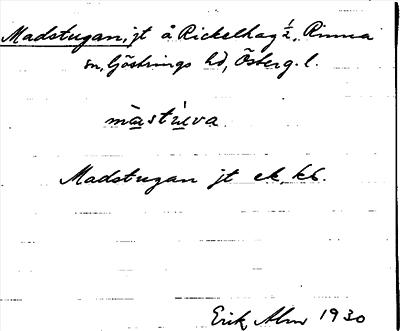 Madstugan, jt å Rickelhag ½, Rinna
sn, Göstrings hd, Österg. l.
màstùva
Madstugan jt ek. kb.
Erik Alm 1930